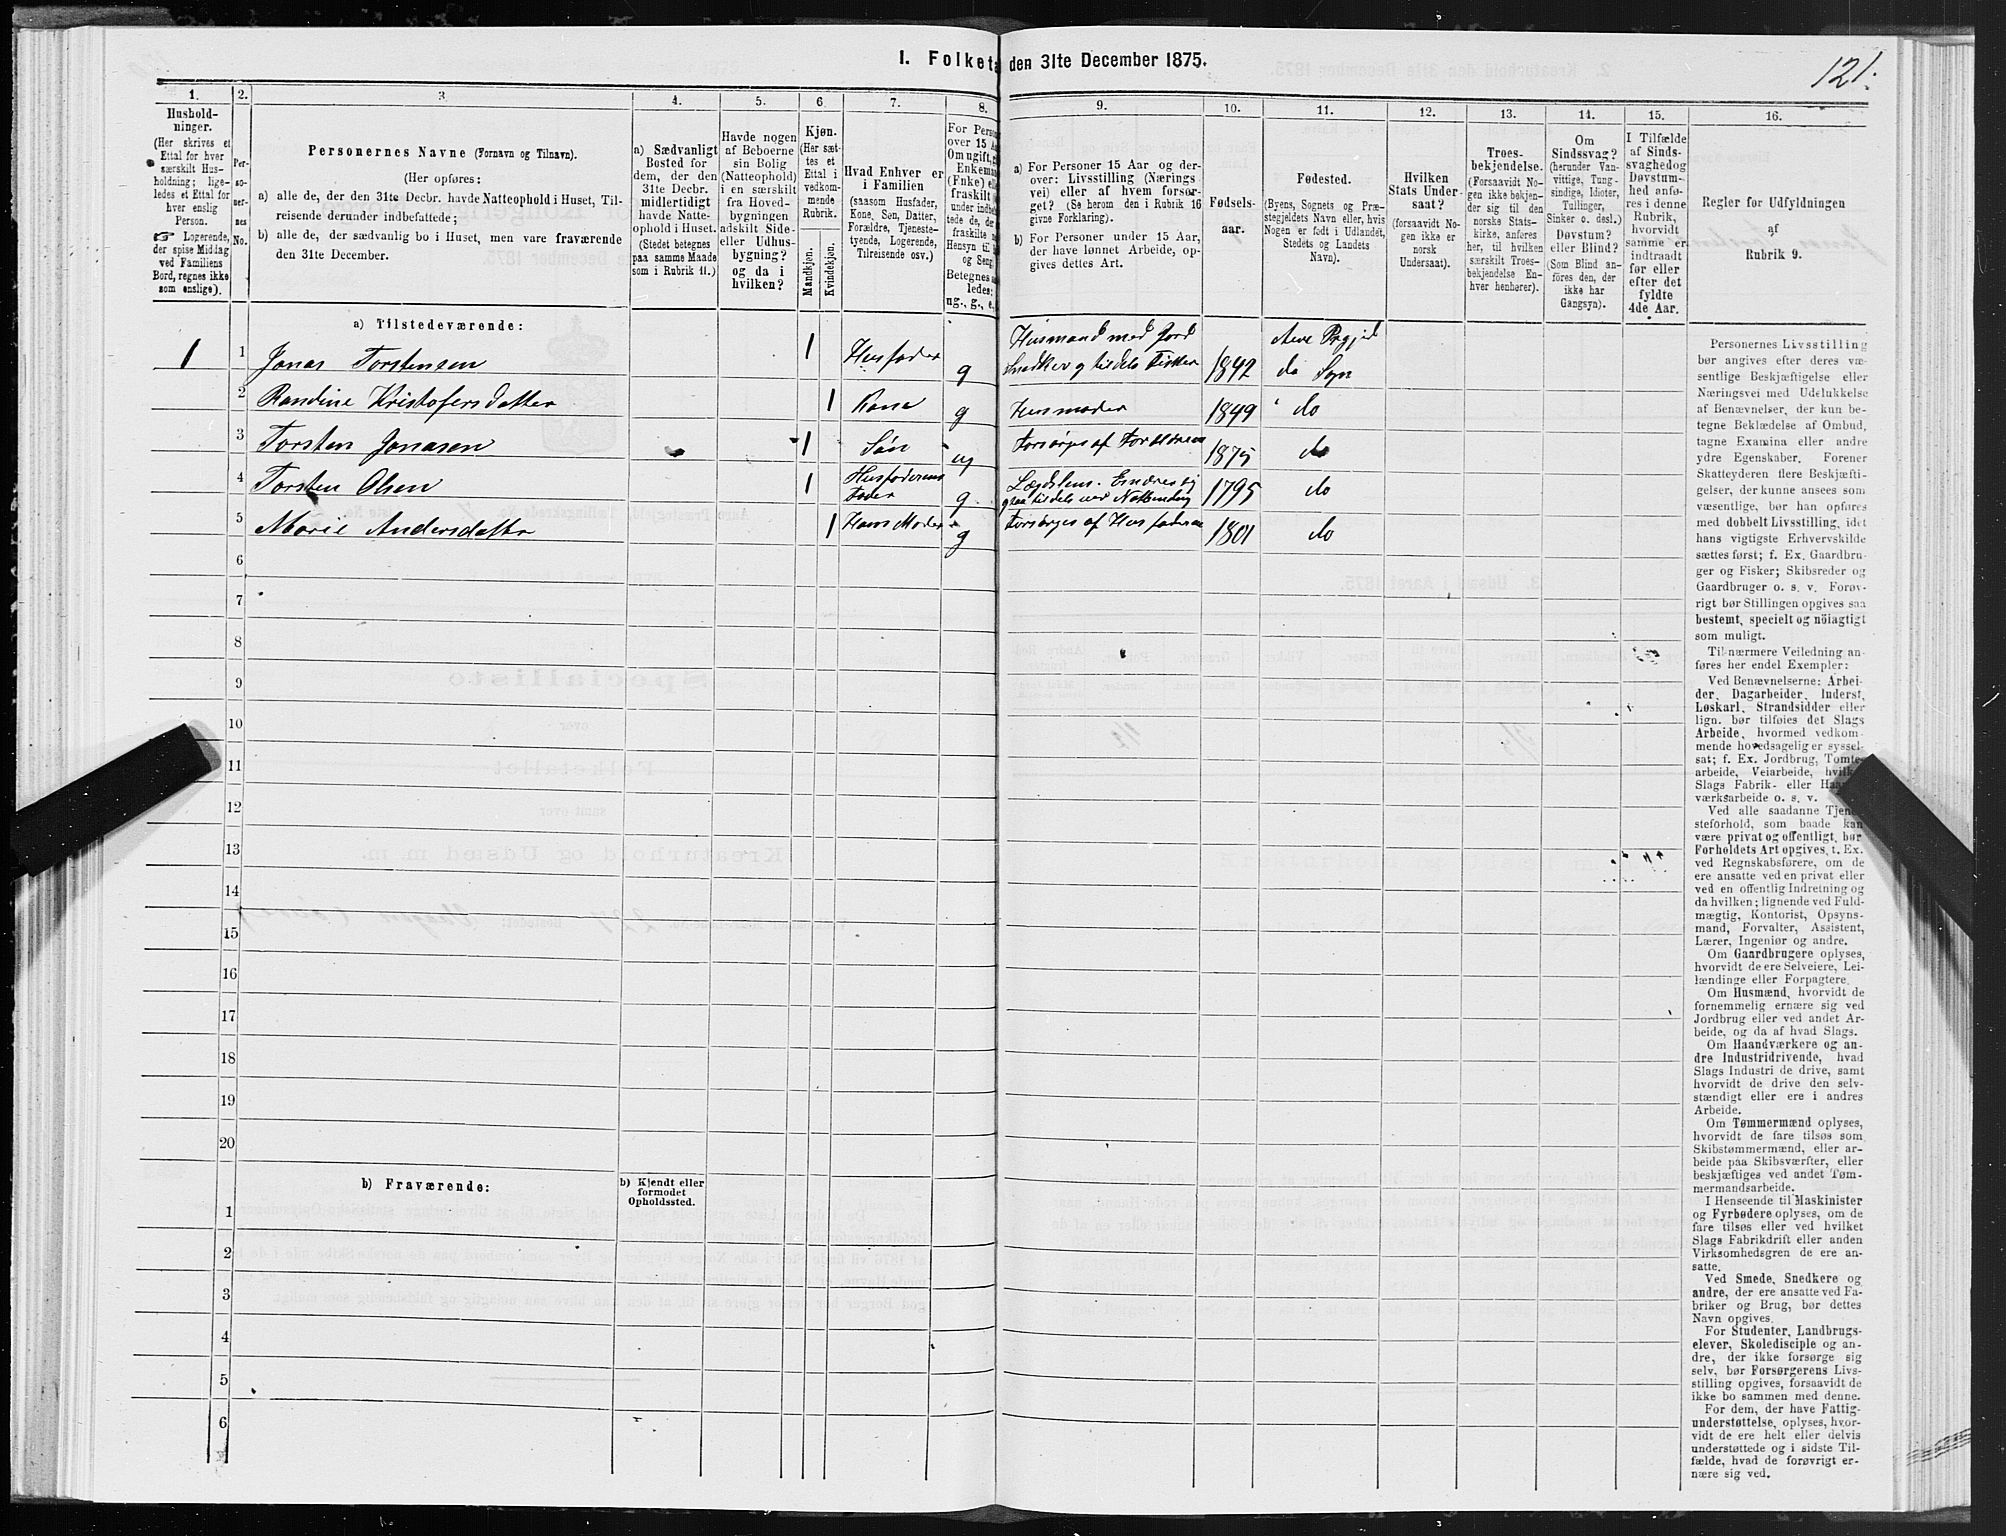 I. Folketa den 31te December 1875.
121.
1.
Hushold-
ninger.
(Her skrives et
Ettal for hver
særskilt Hus-
holdning; lige-
ledes et Ettal for
hver enslig
Person.
☞ Logerende,
der spise Middag
ved Familiens
Bord, regnes ikke
som enslige).
2.
Per-
so-
ner-
nes
No.
3
Personernes Navne (Fornavn og Tilnavn).
(Her opføres:
a) alle de, der den 31te Decbr. havde Natteophold i Huset, Til-
reisende derunder indbefattede;
b) alle de, der sædvanlig bo i Huset, men vare fraværende
den 31te December.
4.
a) Sædvanligt
Bosted for
dem, der den
31te Decbr.
midlertidigt
havde Natte-
ophold i Huset.
(Stedet betegnes
paa samme Maade
som i Rubrik 11.)
5.
Havde nogen
af Beboerne
sin Bolig
(Natteophold)
i en særskilt
fra Hoved-
bygningen
adskilt Side-
eller Udhus-
bygning?
og da i
hvilken?
6
Kjøn.
(Her sæt-
tes et
Ettal i
vedkom-
mende
Rubrik.
Mandkjøn.
Kvindekjøn.
7.
Hvad Enhver er
i Familien
(saasom Husfader,
Kone, Søn, Datter,
Forældre, Tjeneste-
tyende, Logerende,
Tilreisende osv.)
8.
For Perso
over 15 Aa
Om ugift, g
Enkeman
(Enke) el
fraskilt
under indbe
tede de, de
fraskilte
Hensyn til
og Seng
Betegnes s
ledes:
ug., g., e.
9.
a) For Personer 15 Aar og der-
over: Livsstilling (Nærings
vei) eller af hvem forsør-
get? (Se herom den i Rubrik 16
givne Forklaring).
b) For Personer under 15 Aar,
der have lønnet Arbeide, op-
gives dettes Art.
10.
Fødsels-
aar.
11.
Fødested.
(Byens, Sognets og Præ-
stegjeldets Navn eller, hvis
Nogen er født i Udlandet,
Stedets og Landets
Navn).
12.
Hvilken
Stats Under-
saat?
(forsaavidt No-
gen ikke er
norsk
Undersaat).
13.
Troes-
bekjendelse.
(Forsaavidt No-
gen ikke bekjen-
der sig til den
norske Stats-
kirke, anføres
her, til hvilken
særskilt Troes-
bekjendelse En-
hver henhører).
14.
Om
Sindssvag?
(herunder Van-
vittige, Tung-
sindige, Idioter,
Tullinger,
Sinker o. desl.)
Døvstum?
eller Blind?
(Som Blind an-
føres den, der
ikke har
Gangsyn).
15.
I Tilfælde
af Sinds-
svaghed og
Døvstum-
hed anfø-
res i denne
Rubrik,
hvorvidt
samme er
indtraadt
før eller
efter det
fyldte
4de Aar.
16.
Regler før Udfyldning
af
Rubrik 9.
a) Tilstedeværende:
1 1 Jonas Torstensen 1 Husfader g Husmand med Jord
Snedker og tildels Fisker 1842 Aure Prgjd
do Sogn
2 Randine Kristofersdatter 1 Kone g Husmoder 1849 do
3 Torsten Jonasen 1 Søn ug Forsørges af Forældrene 1875 do
4 Torsten Olsen 1 Husfaderens
Fader g. 1795 do
5 Marie Andersdatter 1 Hans Moder g Forsørges af Husfaderen 1801 do
6
7
8
9
10
11
12
13
14
15
16
17
18
19
20
b) Fraværende:
b) Kjendt eller
formodet
Opholdssted.
1
2
3
4
5
6
Personernes Livsstilling
bør angives efter deres væ-
sentlige Beskjæftigelse eller
Næringsvei med Udelukkelse
af Benævnelser, der kun be-
tegne Beklædelse af Ombud,
tagne Examina eller andre
ydre Egenskaber. Forener
Skatteyderen flere Beskjæfti-
gelser, der kunne ansees som
væsentlige, bør han opføres
med dobbelt Livsstilling, idet
hans vigtigste Erhvervskilde
sættes først; f. Ex. Gaardbru-
ger og Fisker; Skibsreder og
Gaardbruger o. s. v. Forøv-
rigt bør Stillingen opgives saa
bestemt, specielt og nöiagtigt
som muligt.
Til nærmere Veiledning an-
føres her endel Exempler:
Ved Benævnelserne: Arbei-
der, Dagarbeider, Inderst,
Løskarl, Strandsidder eller
lign. bør tilføies det Slags
Arbeide, hvormed vedkom-
mende hovedsagelig er syssel-
sat; f. Ex. Jordbrug, Tomte-
arbeide, Veiarbeide, hvilket
Slags Fabrik- eller Haand-
værksarbeide o. s. v.
Ved alle saadanne Tjene-
steforhold, som baade kan
være privat og offentligt, bør
Forholdets Art opgives, t. Ex.
ved Regnskabsførere, om de
ere ansatte ved en privat eller
ved en offentlig Indretning og
da hvilken; lignende ved Fuld-
mægtig, Kontorist, Opsyns-
mand, Forvalter, Assistent,
Lærer, Ingeniør og andre.
Om Gaardbrugere oplyses,
hvorvidt de ere Selveiere, Lei-
lændinge eller Forpagtere.
Om Husmænd, hvorvidt de
fornemmelig ernære sig ved
Jordbrug eller ved andet Ar-
beide, og da af hvad Slags.
Om Haandværkere og an-
dre Industridrivende, hvad
Slags Industri de drive, samt
hvorvidt de drive den selv-
stændigt eller ere i andres
Arbeide.
Om Tømmermænd oplyses,
hvorvidt de fare tilsøs som
Skibstømmermænd, eller ar-
beide paa Skibsværfter, eller
beskjæftiges ved andet Tøm-
mermandsarbeide.
I Henseende til Maskinister
og Fyrbødere oplyses, om de
fare tilsøs eller ved hvilket
Slags Fabrikdrift eller anden
Virksomhedsgren de ere an-
satte.
Ved Smede, Snedkere og
andre, der ere ansatte ved Fa-
briker og Brug, bør dettes
Navn opgives.
For Studenter, Landbrugs-
elever, Skoledisciple og an-
dre, der ikke forsørge sig
selv, bør Forsørgerens Livs-
stilling opgives, forsaavidt de
ikke bo sammen med denne.
For dem, der have Fattig-
understøttelse, oplyses, hvor-
vidt de ere helt eller delvis
understøttede og i sidste Til-
fælde, hvad de forøvrigt er-
nære sig ved.